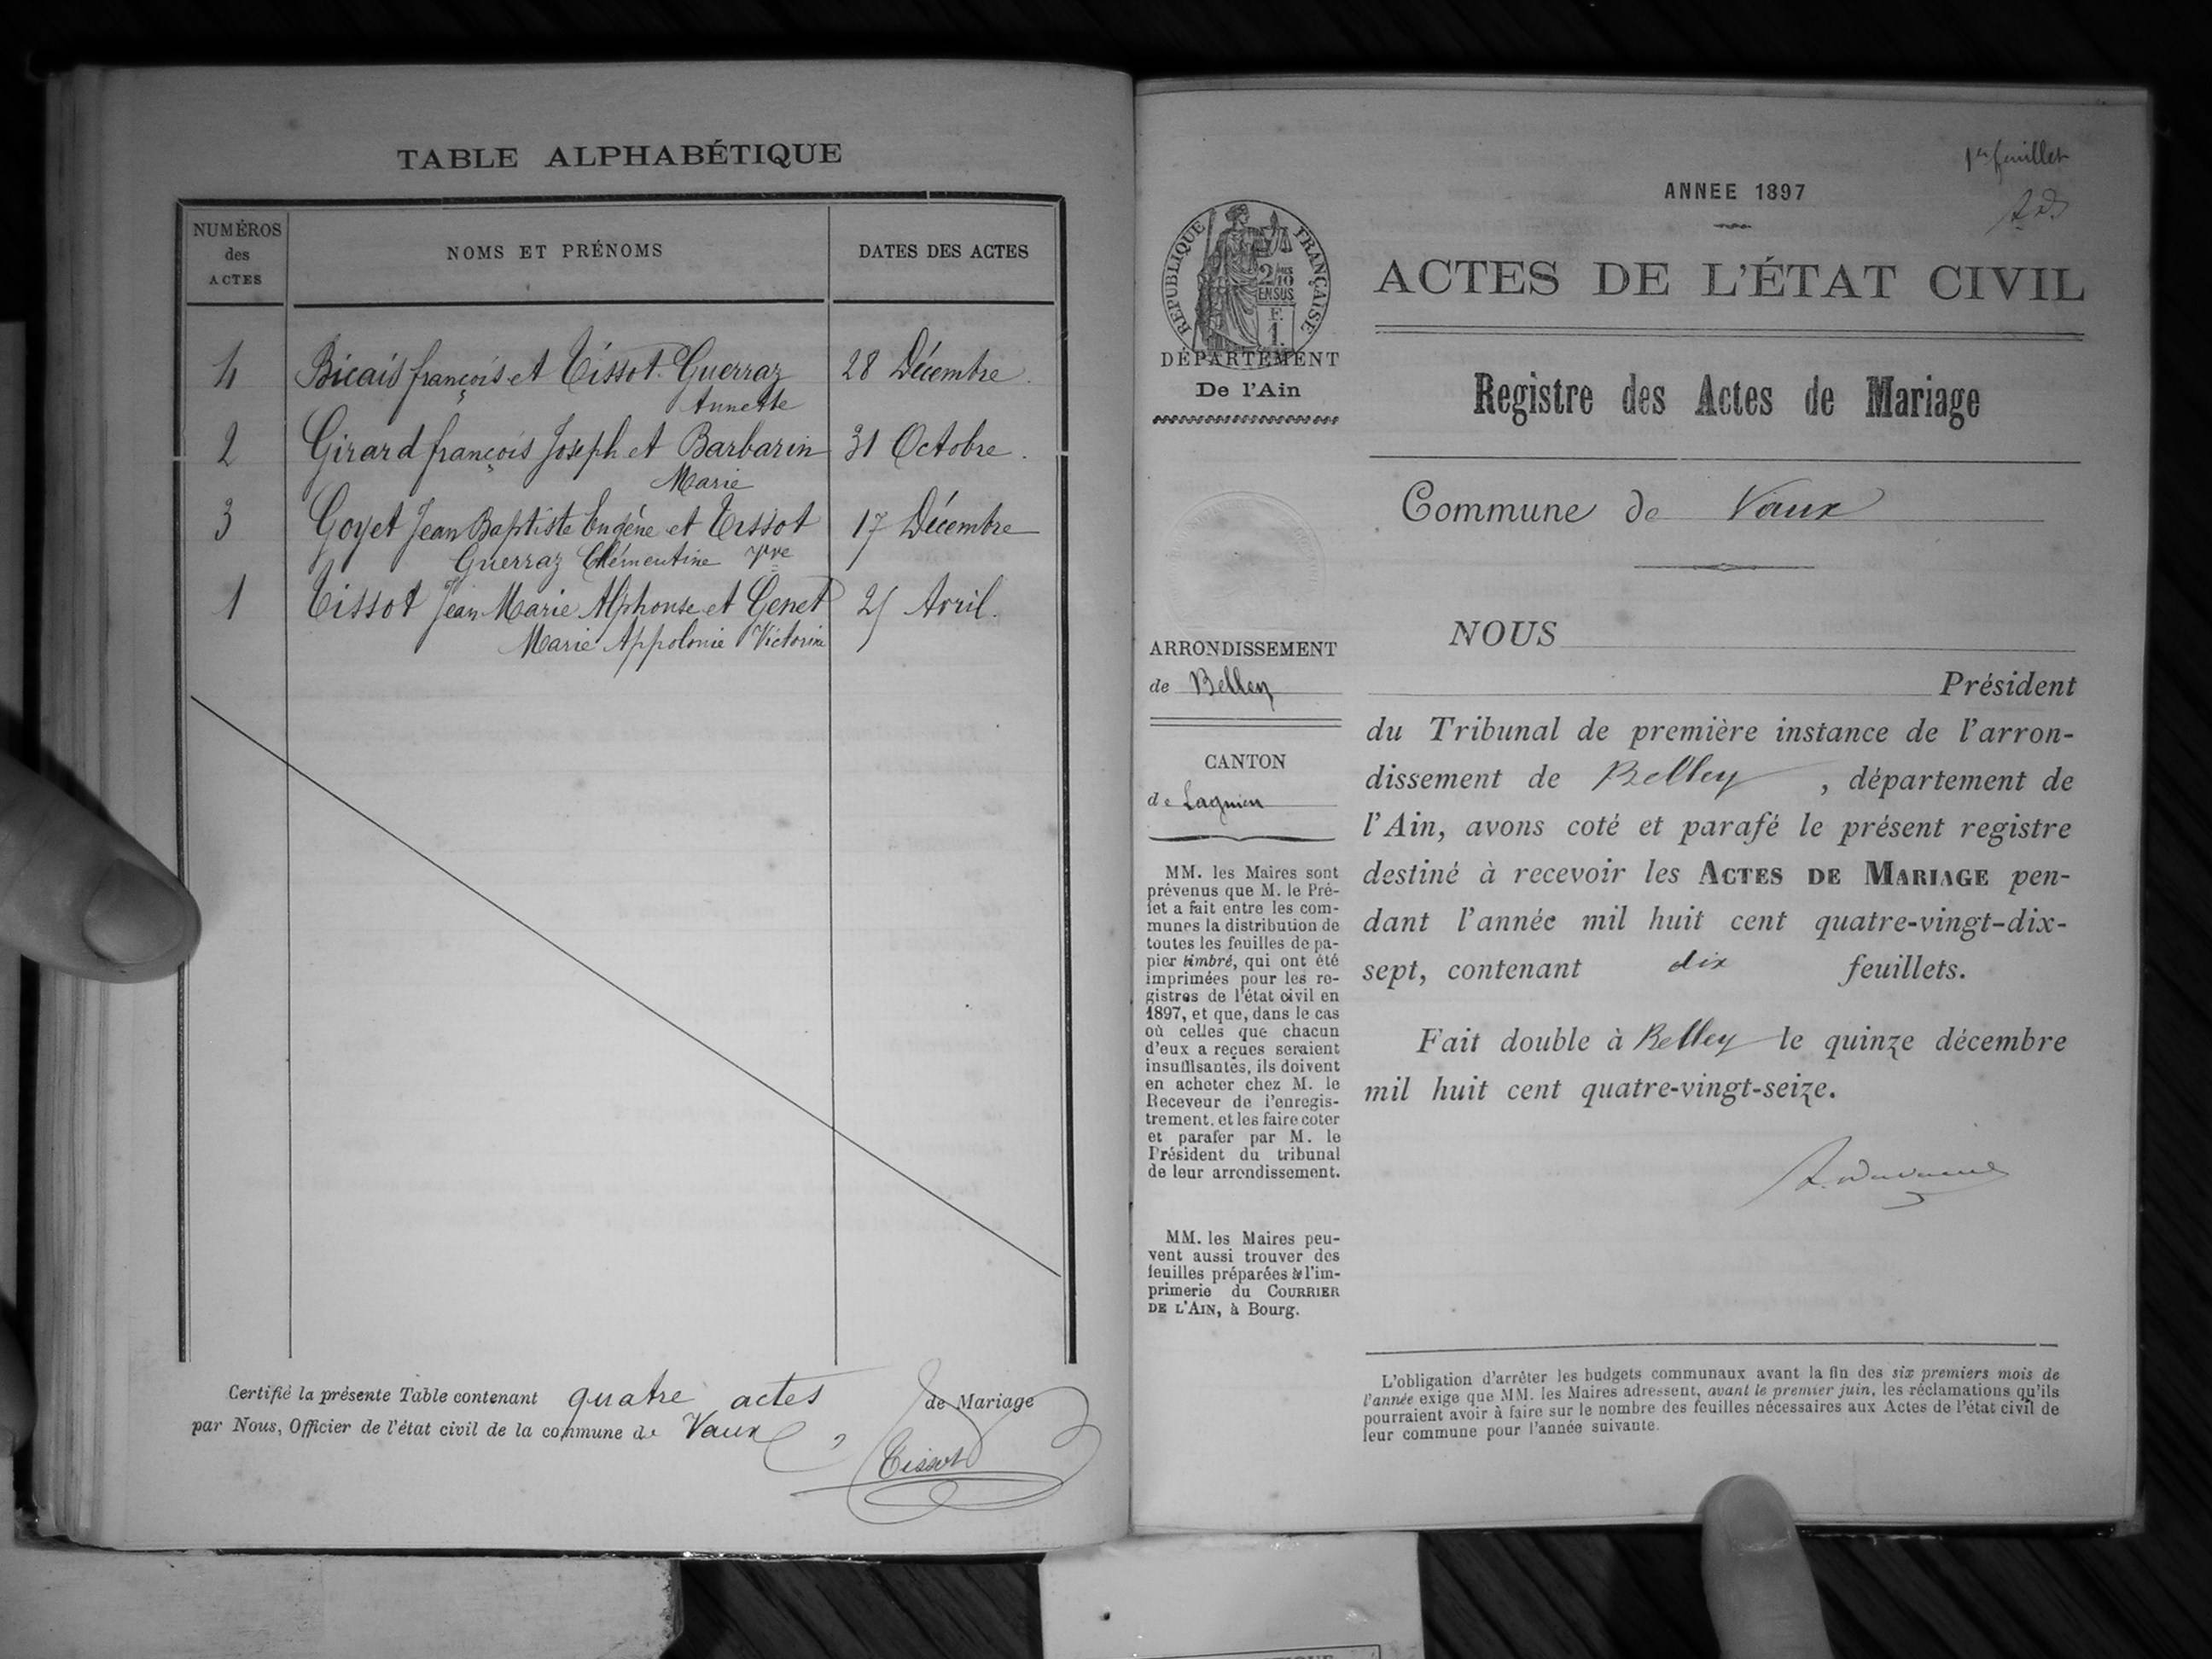 TABLE ALPHABÉTIQUE
NUMÉROS
des
ACTES
NOMS ET PRÉNOMS
DATES DES ACTES
4 Bicais françois et Tissot-Guerraz 28 Décembre.
Annette
2 Girard françois Joseph et Barbarin 31 Octobre.
Marie
3 Goyet Jean Baptiste Eugène et Tissot 17 Décembre
Guerraz Clémentine vve
1 Tissot Jean Marie Alphonse et Genet 25 Avril.
Marie Appolonie Victorine
Certifié la présente Table contenant quatre actes de Mariage
par Nous, Officier de l'état civil de la commune de Vaux
Tissot
1er feuillet
ANNEE 1897
RÉPUBLIQUE FRANÇAISE
2/10
EN SUS
F.
1.
DÉPARTEMENT
De l'Ain
ACTES DE L'ÉTAT CIVIL
Registre des Actes de Mariage
Commune de Vaux
ARRONDISSEMENT
de Belley
CANTON
de Lagnieu
MM. les Maires sont
prévenus que M. le Pré-
fet a fait entre les com-
munes la distribution de
toutes les feuilles de pa-
pier timbré, qui ont été
imprimées pour les re-
gistres de l'état civil en
1897, et que, dans le cas
où celles que chacun
d'eux a reçues seraient
insuffisantes, ils doivent
en acheter chez M. le
Receveur de l'enregis-
trement, et les faire coter
et parafer par M. le
Président du tribunal
de leur arrondissement.
MM. les Maires peu-
vent aussi trouver des
feuilles préparées à l'im-
primerie du COURRIER
DE L'AIN, à Bourg.
NOUS
Président
du Tribunal de première instance de l'arron-
dissement de Belley, département de
l'Ain, avons coté et parafé le présent registre
destiné à recevoir les ACTES DE MARIAGE pen-
dant l'année mil huit cent quatre-vingt-dix-
sept, contenant dix feuillets.
Fait double à Belley le quinze décembre
mil huit cent quatre-vingt-seize.
L'obligation d'arrêter les budgets communaux avant la fin des six premiers mois de
l'année exige que MM. les Maires adressent, avant le premier juin, les réclamations qu'ils
pourraient avoir à faire sur le nombre des feuilles nécessaires aux Actes de l'état civil de
leur commune pour l'année suivante.